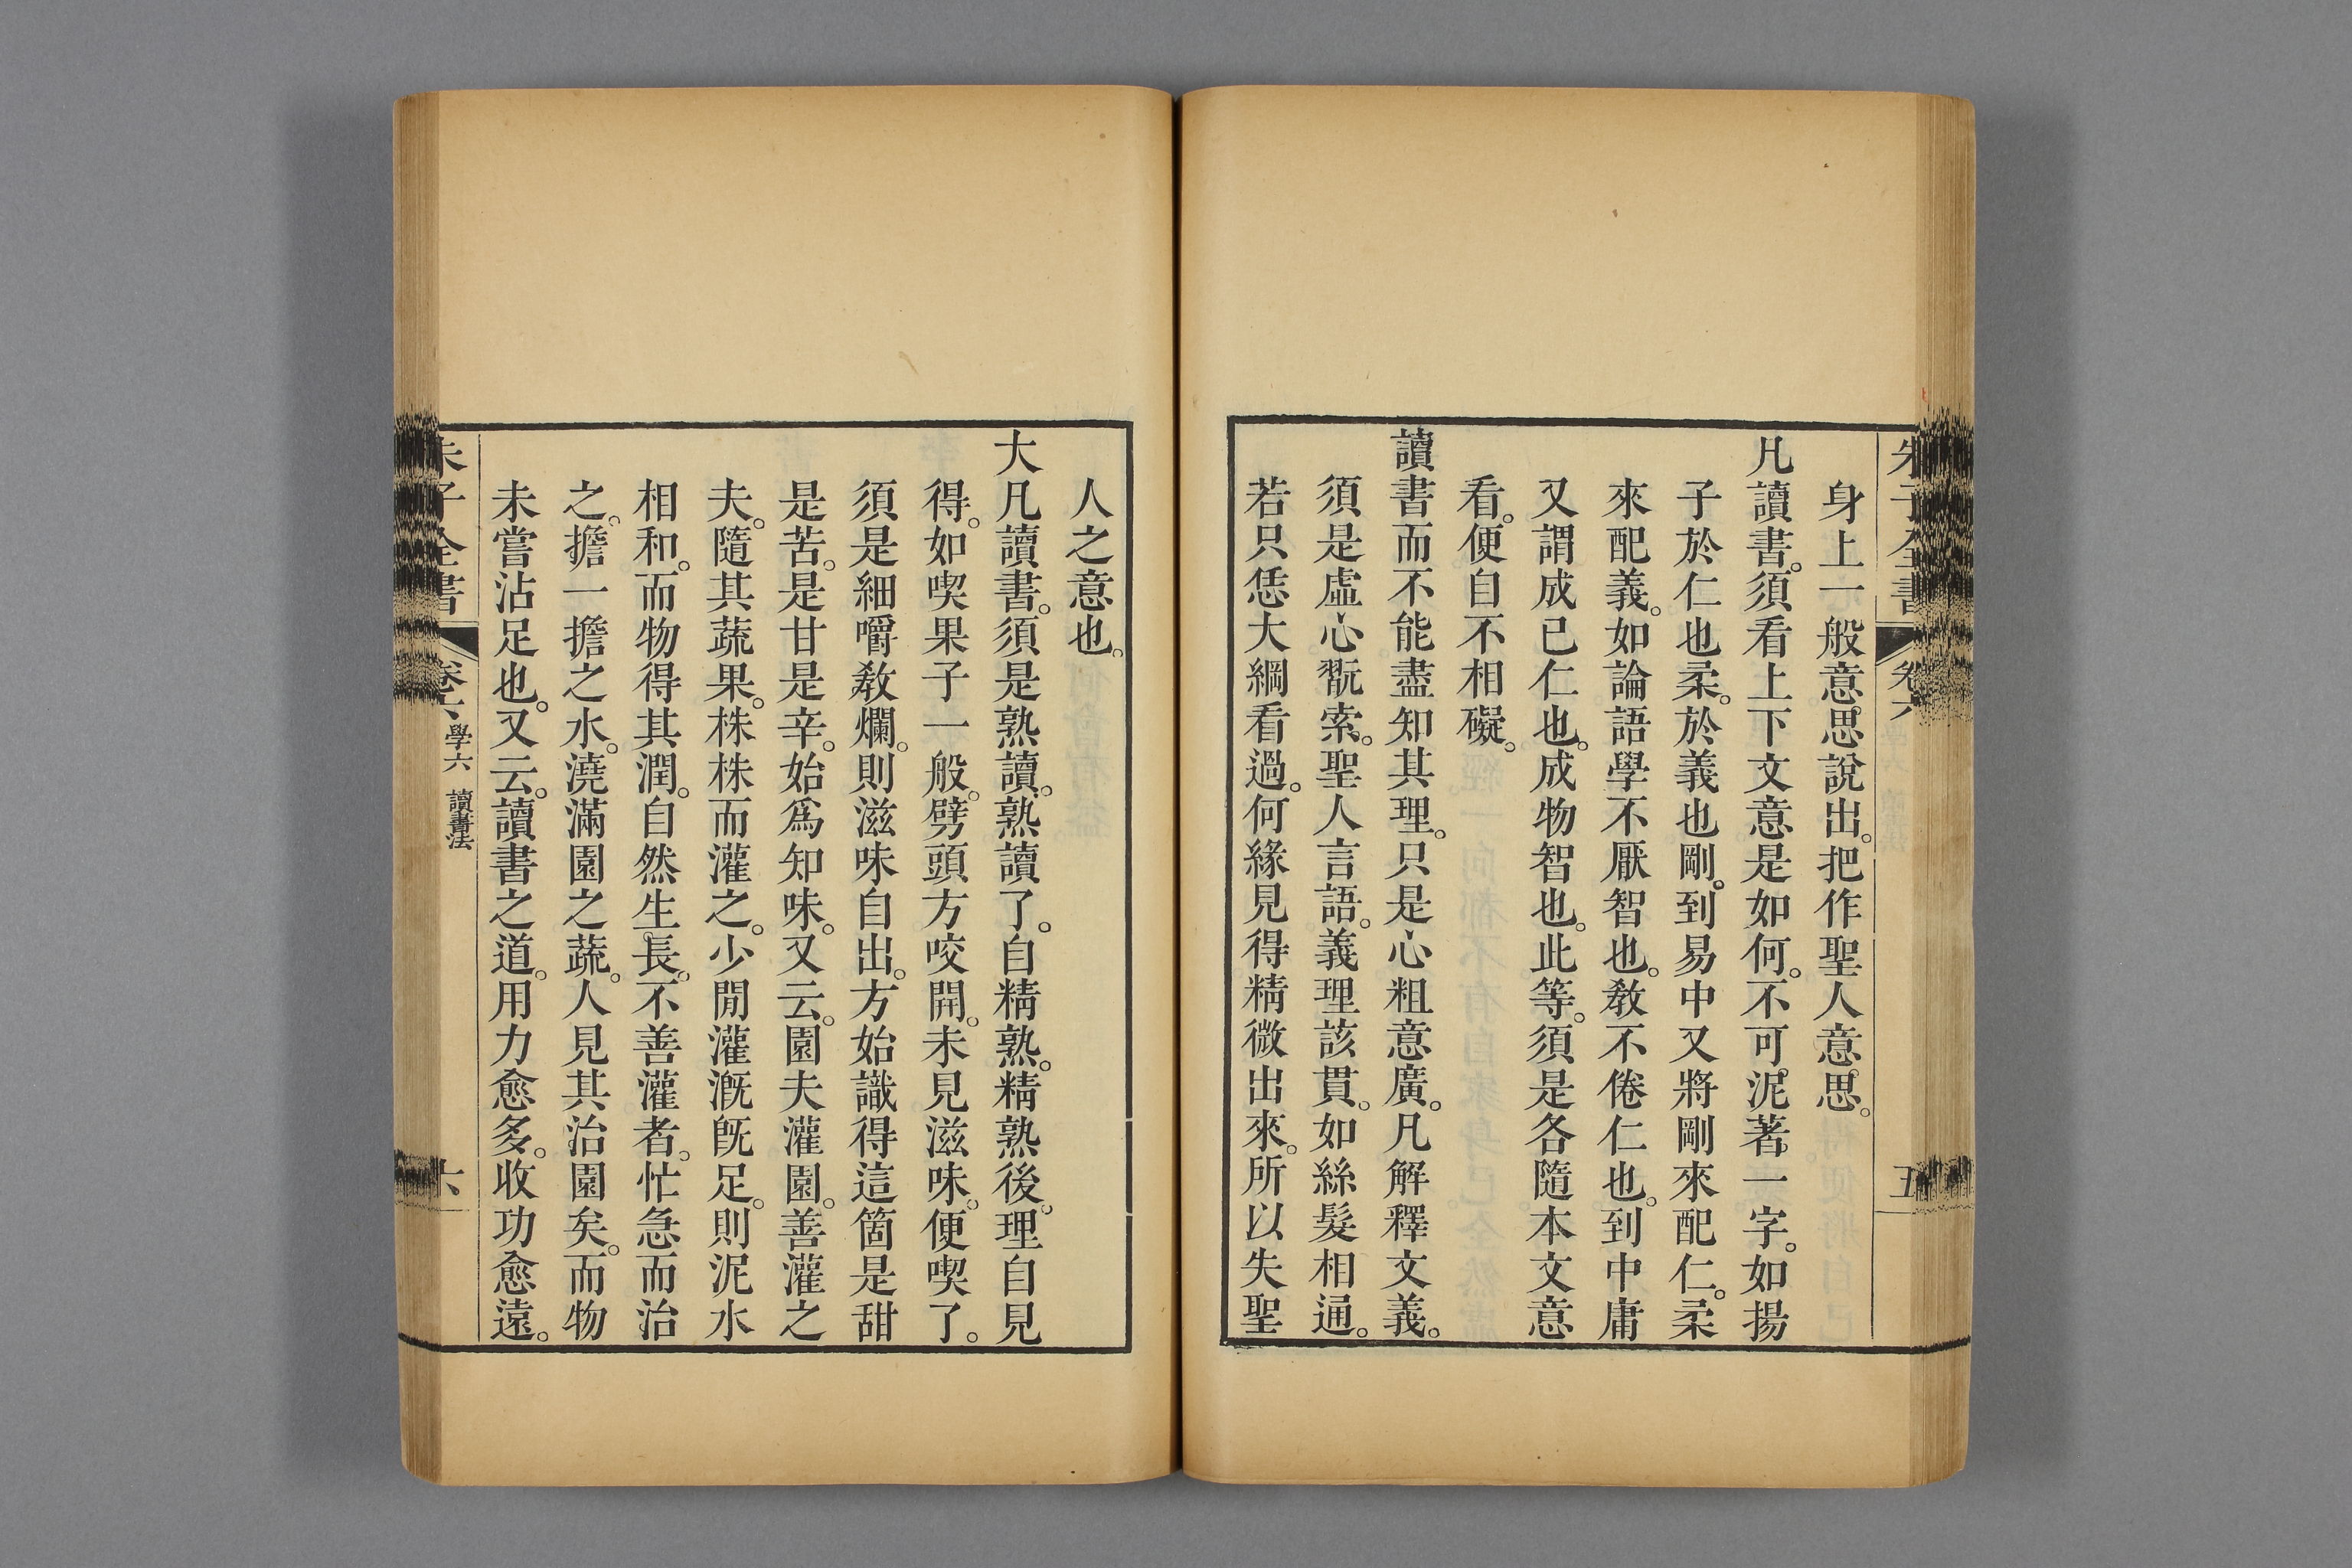 朱子全書 卷六 五
身上一般意思說出。把作聖人意思。
凡讀書。須看上下文意是如何。不可泥著一字。如揚
子於仁也柔。於義也剛。到易中又將剛來配仁。柔
來配義。如論語學不厭智也。敎不倦仁也。到中庸
又謂成己仁也。成物智也。此等。須是各隨本文意
看。便自不相礙。
讀書而不能盡知其理。只是心粗意廣。凡解釋文義。
須是虛心翫索。聖人言語。義理該貫。如絲髮相通。
若只恁大綱看過。何緣見得精微出來。所以失聖
人之意也。
大凡讀書。須是熟讀。熟讀了。自精熟。精熟後。理自見
得。如喫果子一般。劈頭方咬開。未見滋味。便喫了。
須是細嚼敎爛。則滋味自出。方始識得這箇是甜
是苦。是甘是辛。始爲知味。又云。園夫灌園。善灌之
夫。隨其蔬果。株株而灌之。少閒灌漑旣足。則泥水
相和。而物得其潤。自然生長。不善灌者。忙急而治
之。擔一擔之水。澆滿園之蔬。人見其治園矣。而物
未嘗沾足也。又云。讀書之道。用力愈多。收功愈遠。
朱子全書 卷六 學六 讀書法 六